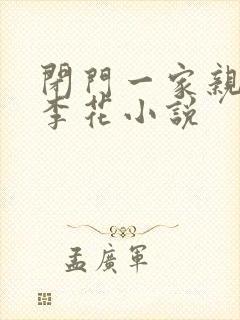 閉門一家親
李花小說
孟廣軍